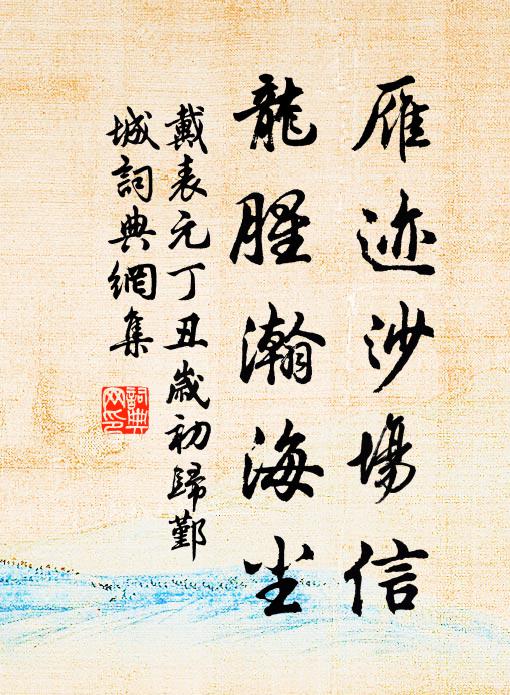 雁迹沙場信
龍腥瀚海尘
戴表元丁丑歲初歸鄞
城詞典網集
詞典